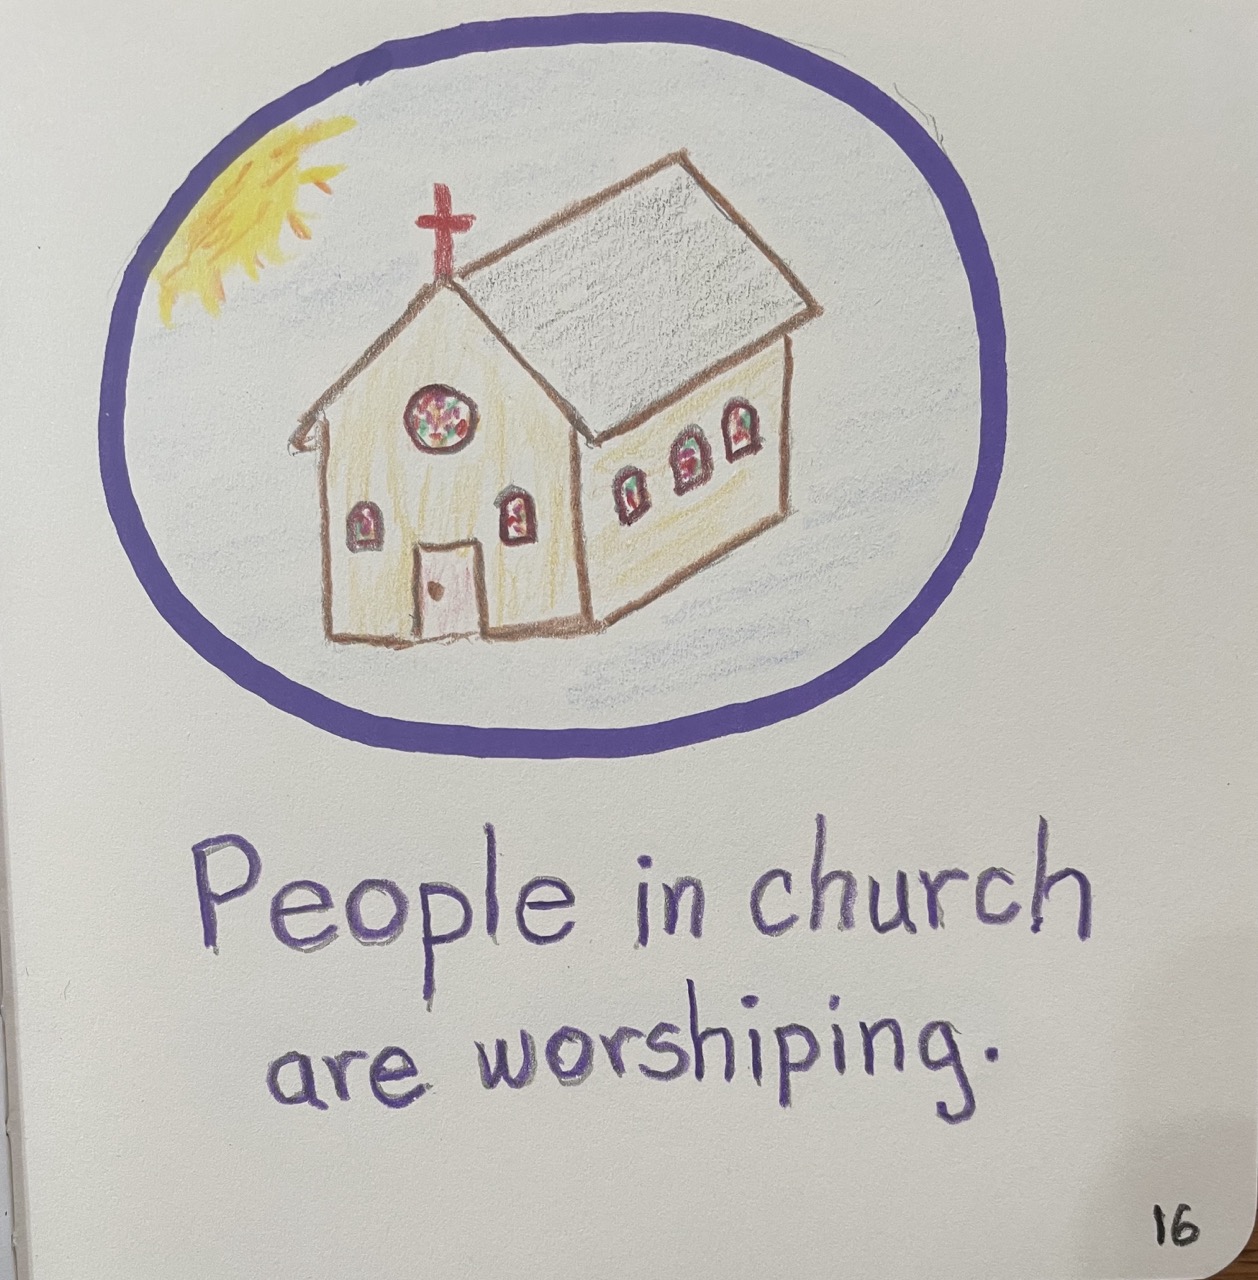 People in church
are worshiping.
16